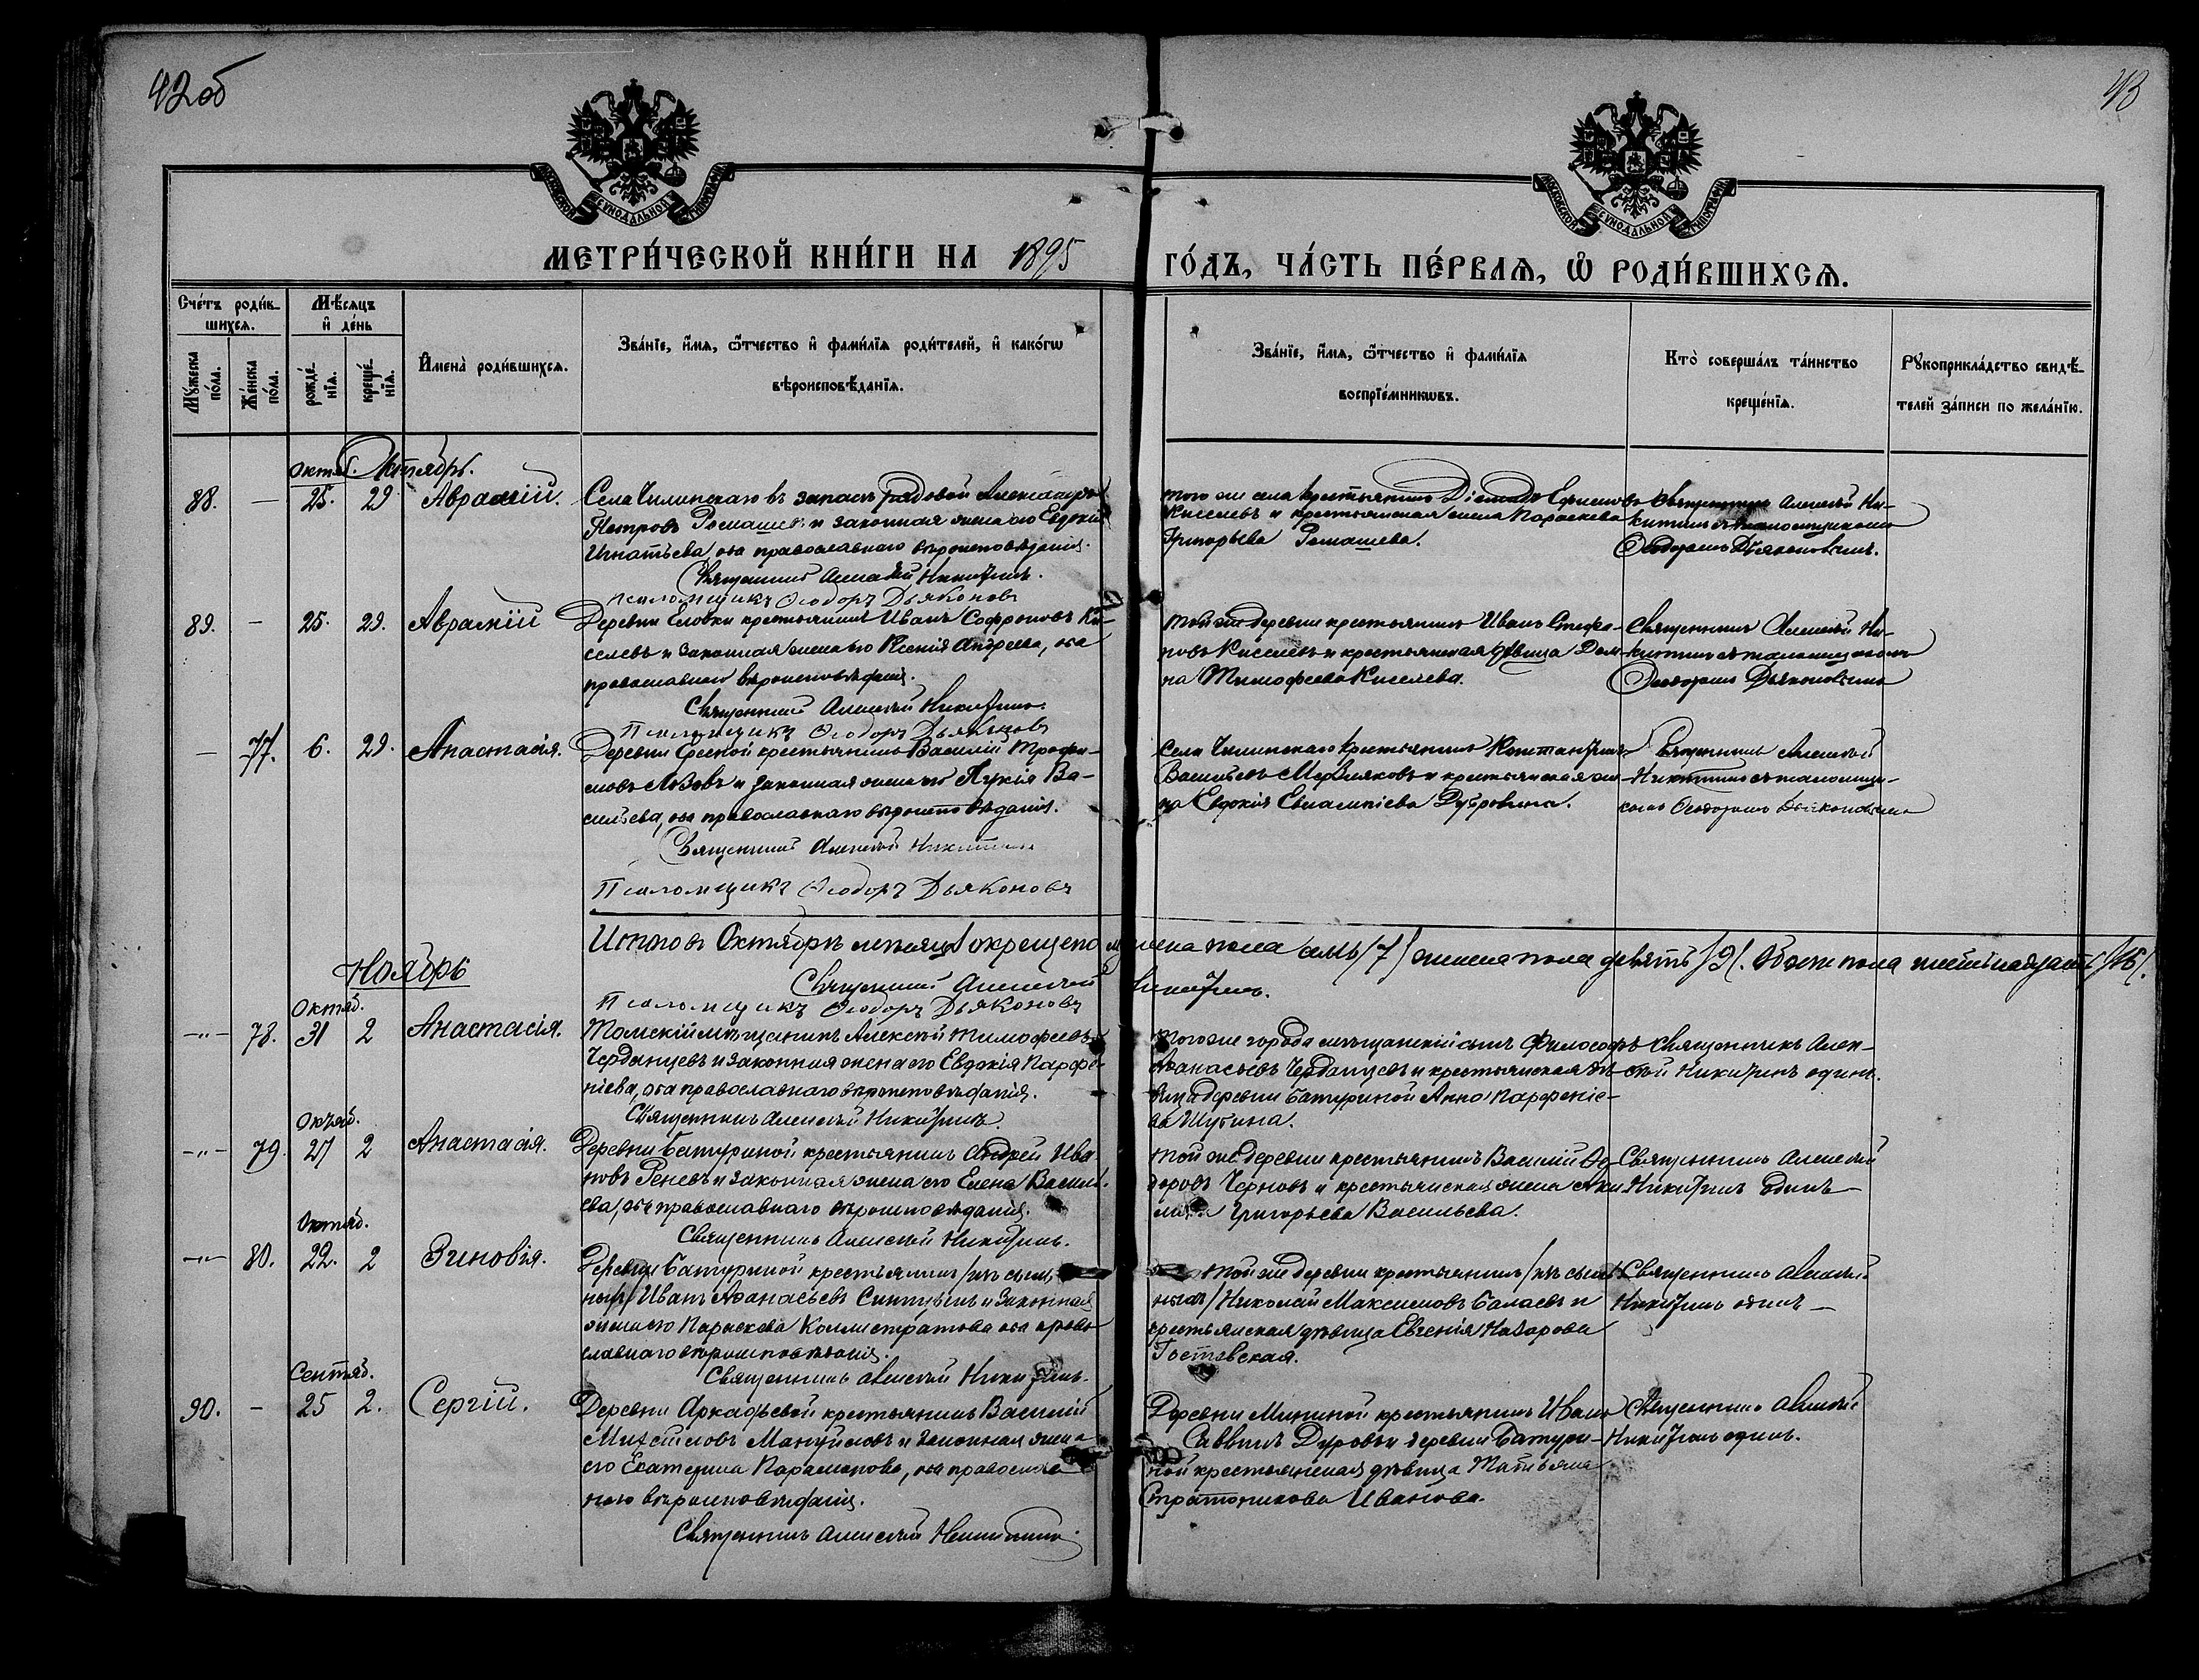 42об
43
МОСКОВСКОЙ СѴНОДАЛЬНОЙ ТИПОГРАФІИ
МОСКОВСКОЙ СѴНОДАЛЬНОЙ ТИПОГРАФІИ
МЕТРИ́ЧЕСКОЙ КНИ́ГИ НА 1895
ГО́ДЪ, ЧА́СТЬ ПЕ́РВАѦ, Ѽ РОДИ́ВШИХСѦ.
Сче́тъ роди́в-
шихсѧ.
Мѣ́сѧцъ
и҆ де́нь
Мꙋ́жеска
по́ла.
Же́нска
по́ла.
рожде́-
нїѧ.
креще́-
нїѧ.
И҆мена̀ роди́вшихсѧ.
Зва́нїе, и҆́мѧ, ѻ҆́тчество и҆ фами́лїѧ роди́телей, и҆ како́гѡ
вѣроисповѣ́данїѧ.
Зва́нїе, и҆́мѧ, ѻ҆́тчество и҆ фами́лїѧ
воспрїе́мникѡвъ.
Кто̀ соверша́лъ та́инство
креще́нїѧ.
Рꙋкоприкла́дство свидѣ́-
телей за́писи по жела́нїю.
Октяб. Октябрь.
88. — 25. 29 Аврамій.
Села Чилинскаго въ запасѣ рядовой Александръ
Петровъ Ромашев и законная жена его Евдокія
Игнатьева, оба православнаго вѣроисповѣданія.
Священникъ Алексѣй Никитинъ.
Псаломщикъ Ѳеодоръ Дьяконовъ
того же села крестьянинъ Діомидъ Ефимовъ
Киселевъ и крестьянская жена Параскева
Григорьева Ромашева.
Священникъ Алексѣй Ни-
китинъ съ псаломщикомъ
Ѳеодоромъ Дьяконовымъ.
89. — 25. 29. Аврамій
Деревни Еловки крестьянинъ Иванъ Софроновъ Ки-
селевъ и законная жена его Ксенія Андреева, оба
православнаго вѣроисповѣданія.
Священникъ Алексѣй Никитинъ.
Псаломщикъ Ѳеодоръ Дьяконовъ
той же деревни крестьянинъ Иванъ Стефа-
новъ Киселевъ и крестьянская дѣвица Дом-
на Тимофеева Киселева.
Священникъ Алексѣй Ни-
китинъ съ псаломщикомъ
Ѳеодоромъ Дьяконовымъ
— 77. 6. 29. Анастасія.
Деревни крестьянинъ Василій Трофи-
мовъ и законная жена его Лукія Ва-
сильева, оба православнаго вѣроисповѣданія.
Священникъ Алексѣй Никитинъ
Псаломщикъ Ѳеодоръ Дьяконовъ
Села Чилинскаго крестьянинъ Константинъ
Васильевъ Мервляковъ и крестьянская жен-
ка Евдокія Евлампіева Дубровина.
Священникъ Алексѣй
Никитинъ съ псаломщи-
комъ Ѳеодоромъ Дьяконовымъ
Итого въ Октябрѣ мѣсяцѣ окрещено мужеска пола семь /7/ женска пола девять /9/. Обоего пола шестьнадцать /16/.
Священникъ Алексѣй Никитинъ.
Псаломщикъ Ѳеодоръ Дьяконовъ
Ноябрь
Октяб.
—"— 78. 31 2 Анастасія.
Томскій мѣщанинъ Алексѣй Тимофеевъ
Черданцевъ и законная жена его Евдокія Парфе-
ніева, оба православнаго вѣроисповѣданія.
Священникъ Алексѣй Никитинъ.
Того же города мѣщанскій сынъ Философъ
Аѳанасьевъ Черданцевъ и крестьянская дѣ-
вица деревни Батуриной Анна Парфеніе-
ва Шубина.
Священникъ Алек-
сѣй Никитинъ одинъ.
Октяб.
—"— 79. 27 2 Анастасія.
Деревни Батуриной крестьянинъ Андрей Ива-
новъ Реневъ и законная жена его Елена Василь-
ева, оба православнаго вѣроисповѣданія.
Священникъ Алексѣй Никитинъ.
той же деревни крестьянинъ Василій Ѳе-
доровъ Черновъ и крестьянская жена Аки-
лина Григорьева Васильева.
Священникъ Алексѣй
Никитинъ одинъ —
Октяб.
—"— 80. 22. 2 Зиновія.
Деревни Батуриной крестьянинъ /изъ ссыль-
ныхъ/ Иванъ Аѳанасьевъ и законная
жена его Параскева Каллистратова оба право-
славнаго вѣроисповѣданія.
Священникъ Алексѣй Никитинъ.
той же деревни крестьянинъ /изъ ссыль-
ныхъ/ Николай Максимовъ Балаевъ и
крестьянская дѣвица Евгенія Назарова
Гостевская.
Священникъ Алексѣй
Никитинъ одинъ —
Сентяб.
90. — 25 2. Сергій.
Деревни Аркадьевой крестьянинъ Василій
Михайловъ Мануйловъ и законная жена
его Екатерина Парамонова, оба православ-
наго вѣроисповѣданія.
Священникъ Алексѣй Никитинъ.
Деревни Мининой крестьянинъ Иванъ
Саввинъ Дуровъ и деревни Батури-
ной крестьянская дѣвица Татьяна
Стратоникова Иванова.
Священникъ Алексѣй
Никитинъ одинъ.